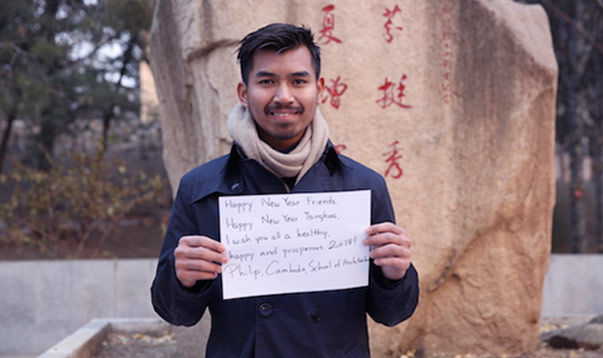 夏 芬
增 挺
秀
Happy New Year Friends,
Happy New Year Tsinghua,
I wish you all a healthy,
happy and prosperous 2018!
Philip, Cambodia, School of